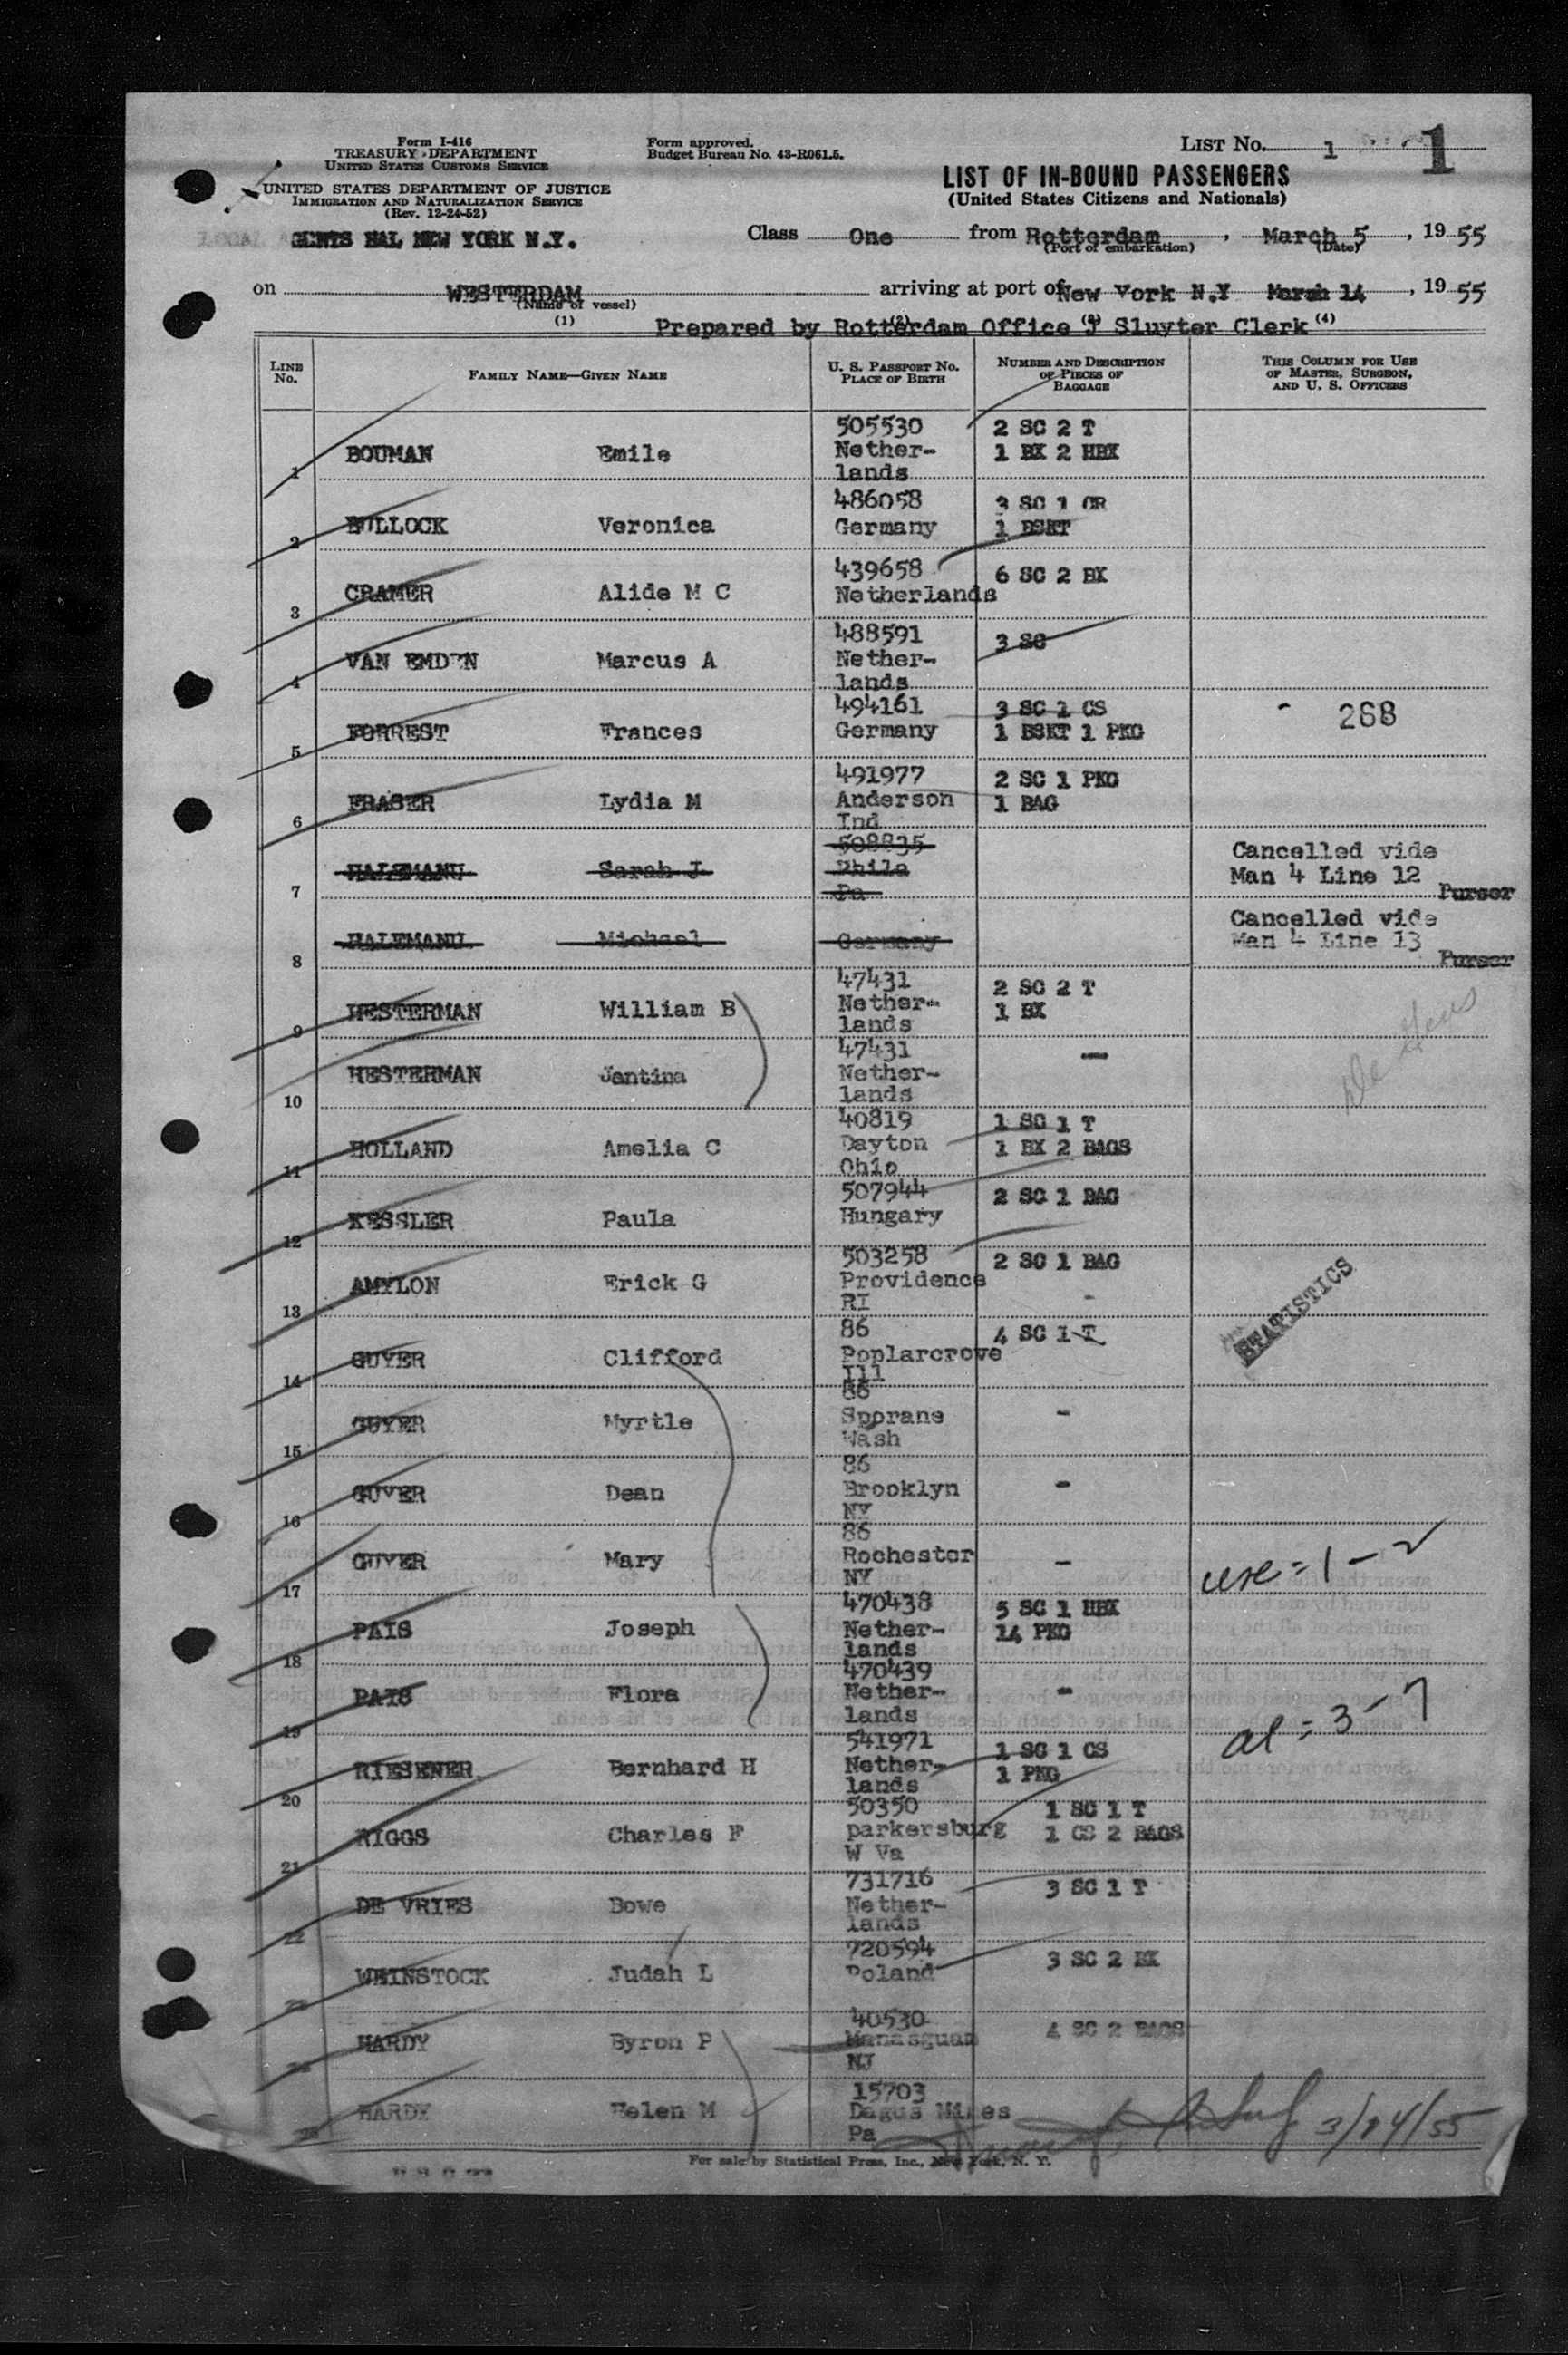 Form I-416
TREASURY DEPARTMENT
UNITED STATES CUSTOMS SERVICE
UNITED STATES DEPARTMENT OF JUSTICE
IMMIGRATION AND NATURALIZATION SERVICE
(Rev. 12-24-52)
Form approved.
Budget Bureau No. 43-R061.5.
LIST No. 1 1
LIST OF IN-BOUND PASSENGERS
(United States Citizens and Nationals)
LOCAL AGENTS HAL NEW YORK N.Y.
Class One from Rotterdam, March 5, 19 55
(Port of embarkation) (Date)
on WESTERDAM arriving at port of New York N.Y March 14, 19 55
(Name of vessel)
(1) (2) (3) (4)
Prepared by Rotterdam Office J Sluyter Clerk
LINE No. FAMILY NAME—GIVEN NAME U. S. PASSPORT No. PLACE OF BIRTH NUMBER AND DESCRIPTION OF PIECES OF BAGGAGE THIS COLUMN FOR USE OF MASTER, SURGEON, AND U. S. OFFICERS
505530 2 SC 2 T
1 BOUMAN Emile Nether- 1 BX 2 HBX
lands
486058 3 SC 1 CR
2 BULLOCK Veronica Germany 1 BSKT
439658 6 SC 2 BX
3 CRAMER Alide M C Netherlands
488591 3 SC
4 VAN EMDEN Marcus A Nether-
lands
494161 3 SC 1 CS 268
5 FORREST Frances Germany 1 BSKT 1 PKG
491977 2 SC 1 PKG
6 FRASER Lydia M Anderson 1 BAG
Ind
508835 Cancelled vide
7 HALEMANU Sarah J Phila Man 4 Line 12
Pa Purser
Cancelled vide
8 HALEMANU Michael Germany Man 4 Line 13
Purser
47431 2 SC 2 T
9 HESTERMAN William B Nether- 1 BX
lands
47431 —
10 HESTERMAN Jantina Nether-
lands
40819 1 SC 1 T
11 HOLLAND Amelia C Dayton 1 BX 2 BAGS
Ohio
507944 2 SC 1 BAG
12 KESSLER Paula Hungary
503258 2 SC 1 BAG
13 AMYLON Erick G Providence -
RI
STATISTICS
86 4 SC 1 T
14 GUYER Clifford Poplarcrove
Ill
86
15 GUYER Myrtle Sporane -
Wash
86
16 GUYER Dean Brooklyn -
NY
86
17 GUYER Mary Rochester -
NY
use = 1 - 2
470438 5 SC 1 HBX
18 PAIS Joseph Nether- 14 PKG
lands
470439
19 PAIS Flora Nether- -
lands
al = 3 - 7
541971 1 SC 1 CS
20 RIESENER Bernhard H Nether- 1 PKG
lands
50350 1 SC 1 T
21 RIGGS Charles F parkersburg 1 CS 2 BAGS
W Va
731716 3 SC 1 T
22 DE VRIES Bowe Nether-
lands
720594 3 SC 2 BX
23 WEINSTOCK Judah L Poland
40530 4 SC 2 BAGS
24 HARDY Byron P Manasquan
NJ
15703
25 HARDY Helen M Dagus Mines
Pa
3/14/55
For sale by Statistical Press, Inc., New York, N. Y.